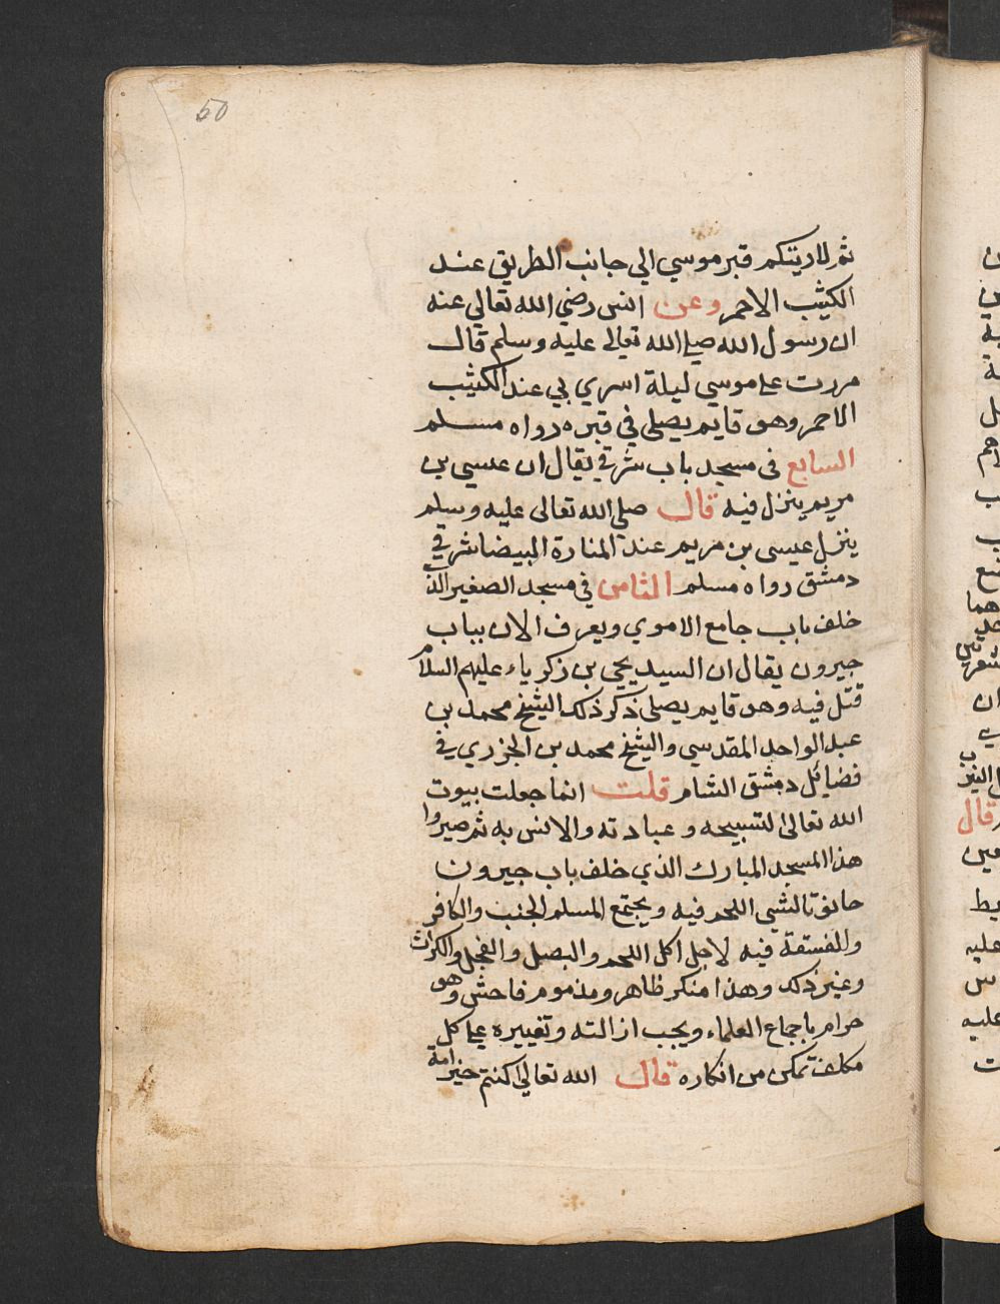 50
ثم لاريتكم قبر موسي الي جانب الطريق عند
الكثيب الاحمر وعن انس رضي الله تعالي عنه
ان رسول الله صلي الله تعالي عليه وسلم قال
مررت علي موسي ليلة اسري بي عند الكثيب
الاحمر وهو قايم يصلي في قبره رواه مسلم
السابع في مسجد باب شرقي يقال ان عيسي بن
مريم ينزل فيه قال صلي الله تعالي عليه وسلم
ينزل عيسي بن مريم عند المنارة البيضا شرقي
دمشق رواه مسلم الثامن في مسجد الصغير الذي
خلف باب جامع الاموي ويعرف الان بباب
جيرون يقال ان السيد يحيي بن زكرياء عليهم السلام
قتل فيه وهو قايم يصلي ذكر ذلك الشيخ محمد بن
عبد الواحد المقدسي والشيخ محمد بن الجزري في
فضائل دمشق الشام قلت انما جعلت بيوت
الله تعالي لتسبيحه وعبادته والانس به ثم صيروا
هذا المسجد المبارك الذي خلف باب جيرون
حانوتا لشي اللحم فيه ويجتمع المسلم الجنب والكافر
والفسقة فيه لاجل اكل اللحم والبصل والفجل والكراث
وغير ذلك وهذا منكر ظاهر ومذموم فاحش وهو
حرام باجماع العلماء ويجب ازالته وتغييره علي كل
مكلف تمكن من انكاره قال الله تعالي كنتم خير امة